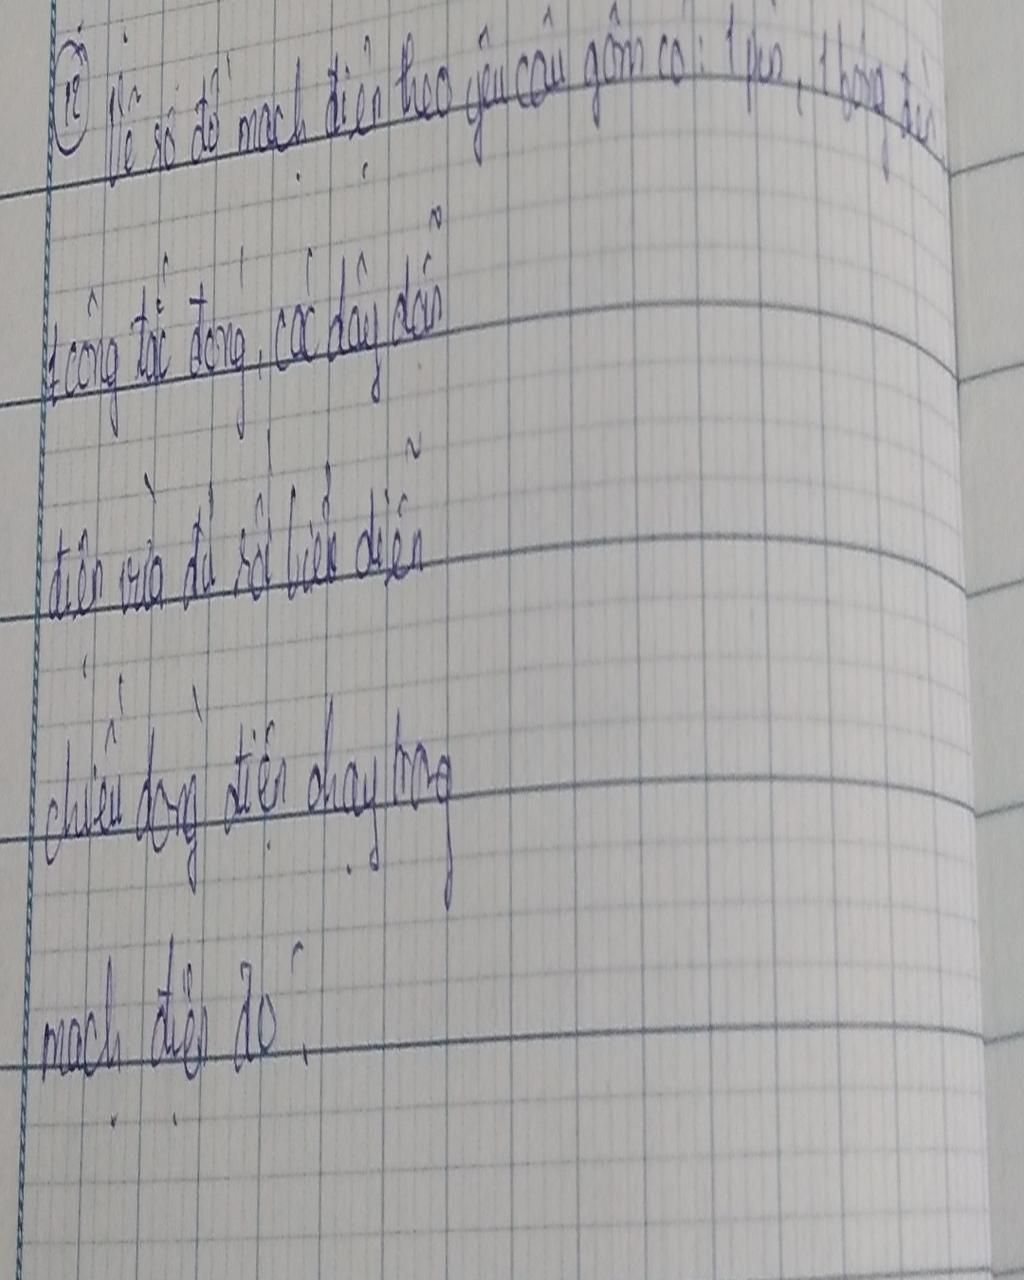 12 Vẽ sơ đồ mạch điện theo yêu cầu gồm có: 1 pin, 1 bóng đèn
1 công tắc đóng, các dây dẫn
điện vừa đủ số biểu diễn
chiều dòng điện chạy trong
mạch điện đó.